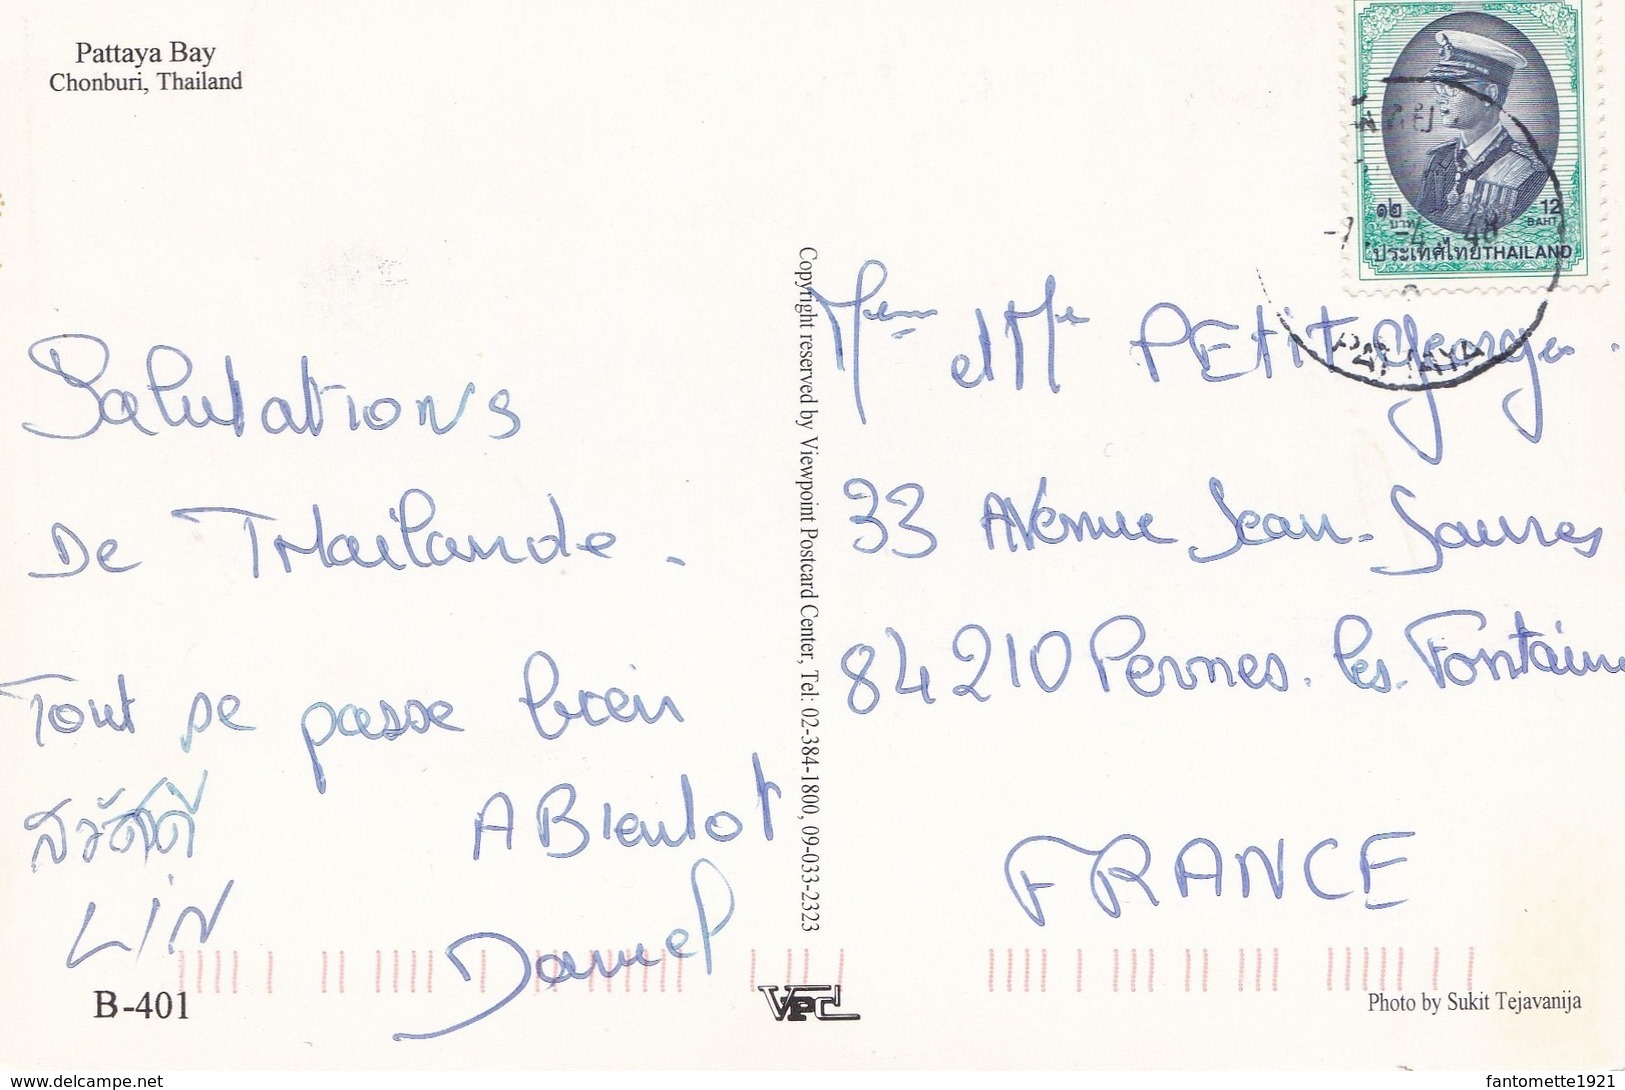 Pattaya Bay
Chonburi, Thailand
๑๒
บาท
12
BAHT
ประเทศไทย THAILAND
-4 48
PATTAYA
Salutations
De THailande.
Tout se passe bien
สวัสดี
A Bientot
LIN
Daniel
B-401
Copyright reserved by Viewpoint Postcard Center, Tel: 02-384-1800, 09-033-2323
VPC
Mme et Mr PETIT Georges.
33 Avenue Jean-Jaures
84210 Pernes.les.Fontaine
FRANCE
Photo by Sukit Tejavanija
www.delcampe.net
fantomette1921